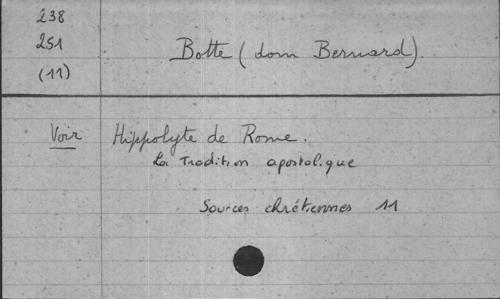 238
251
(11)
Botte (dom Bernard).
Voir Hippolyte de Rome.
La Tradition apostolique
Sources chrétiennes 11